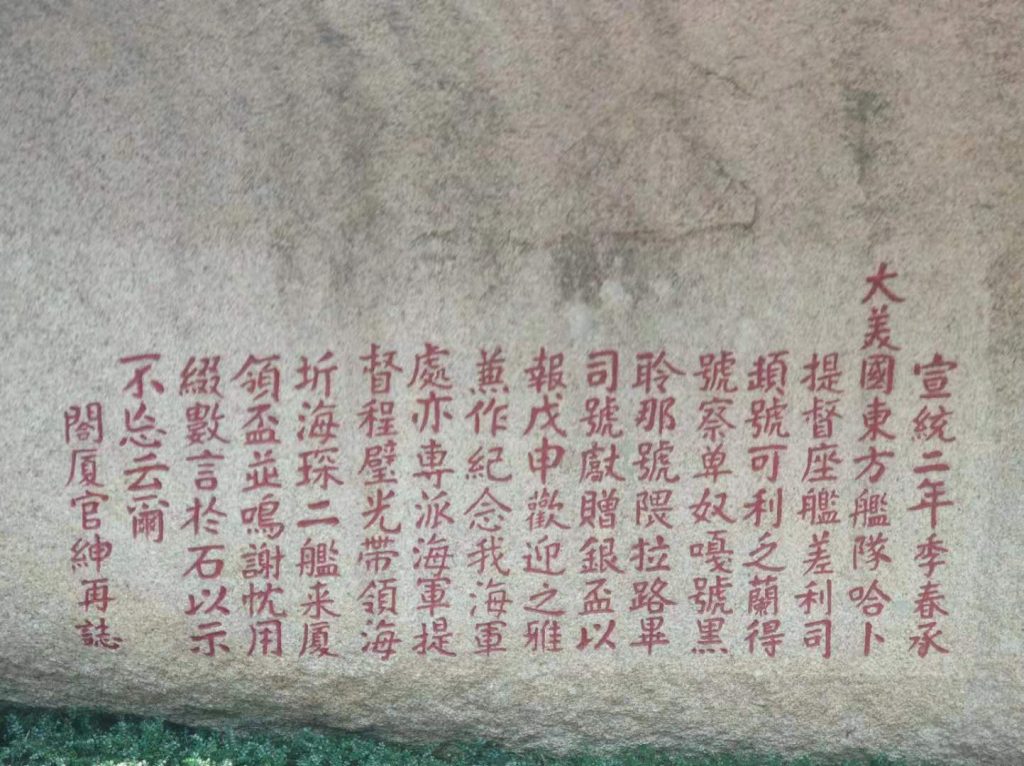 宣統二年季春承
大美國東方艦隊哈卜
提督座艦差利司
頭號可利乏蘭得
號察单奴嘎號黑
聆那號隈拉路畢
司號獻贈銀盃以
報戊申歡迎之雅
蒹作紀念我海軍
處亦専派海軍提
督程璧光帶領海
圻海琛二艦来厦
領盃並鳴謝忱用
綴數言於石以示
不忘云爾
閤厦官紳再誌